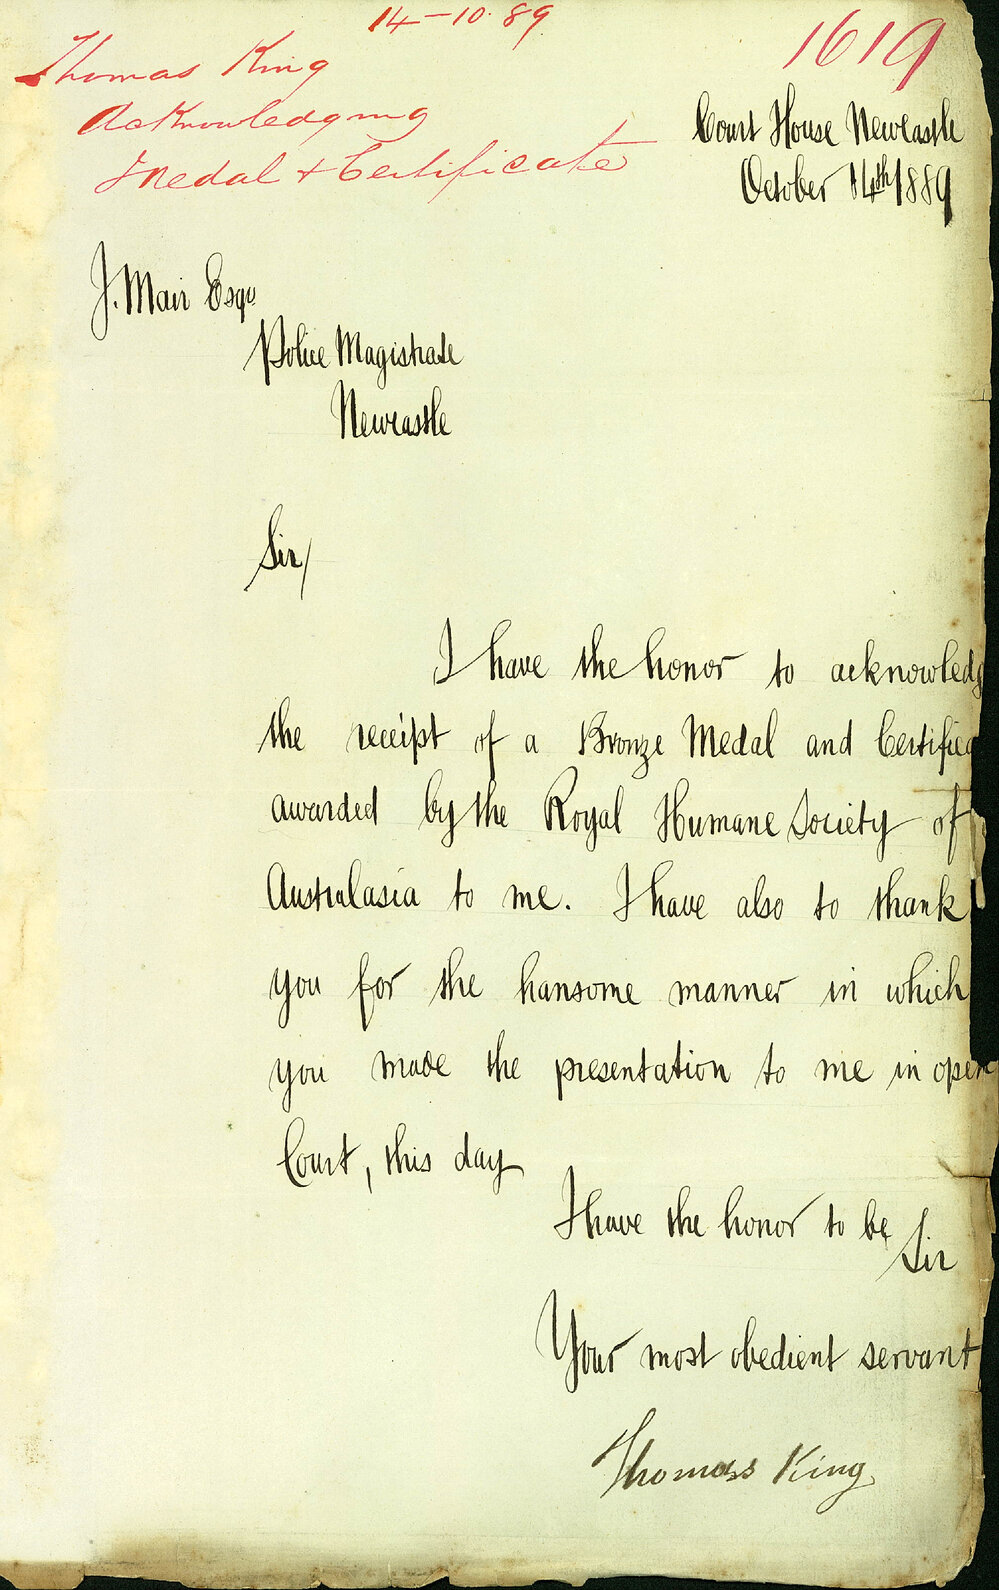 14-10.89
1619
Thomas King
Acknowledging
Medal + Certificate
Court House Newcastle
October 14th 1889
J. Mair Esqu
Police Magistrate
Newcastle
Sir/
I have the honor to acknowledg
the receipt of a Bronze Medal and Certifica
awarded by the Royal Humane Society of
Australasia to me. I have also to thank
you for the hansome manner in which
you made the presentation to me in open
Court, this day
I have the honor to be
Sir
Your most obedient servant
Thomas King